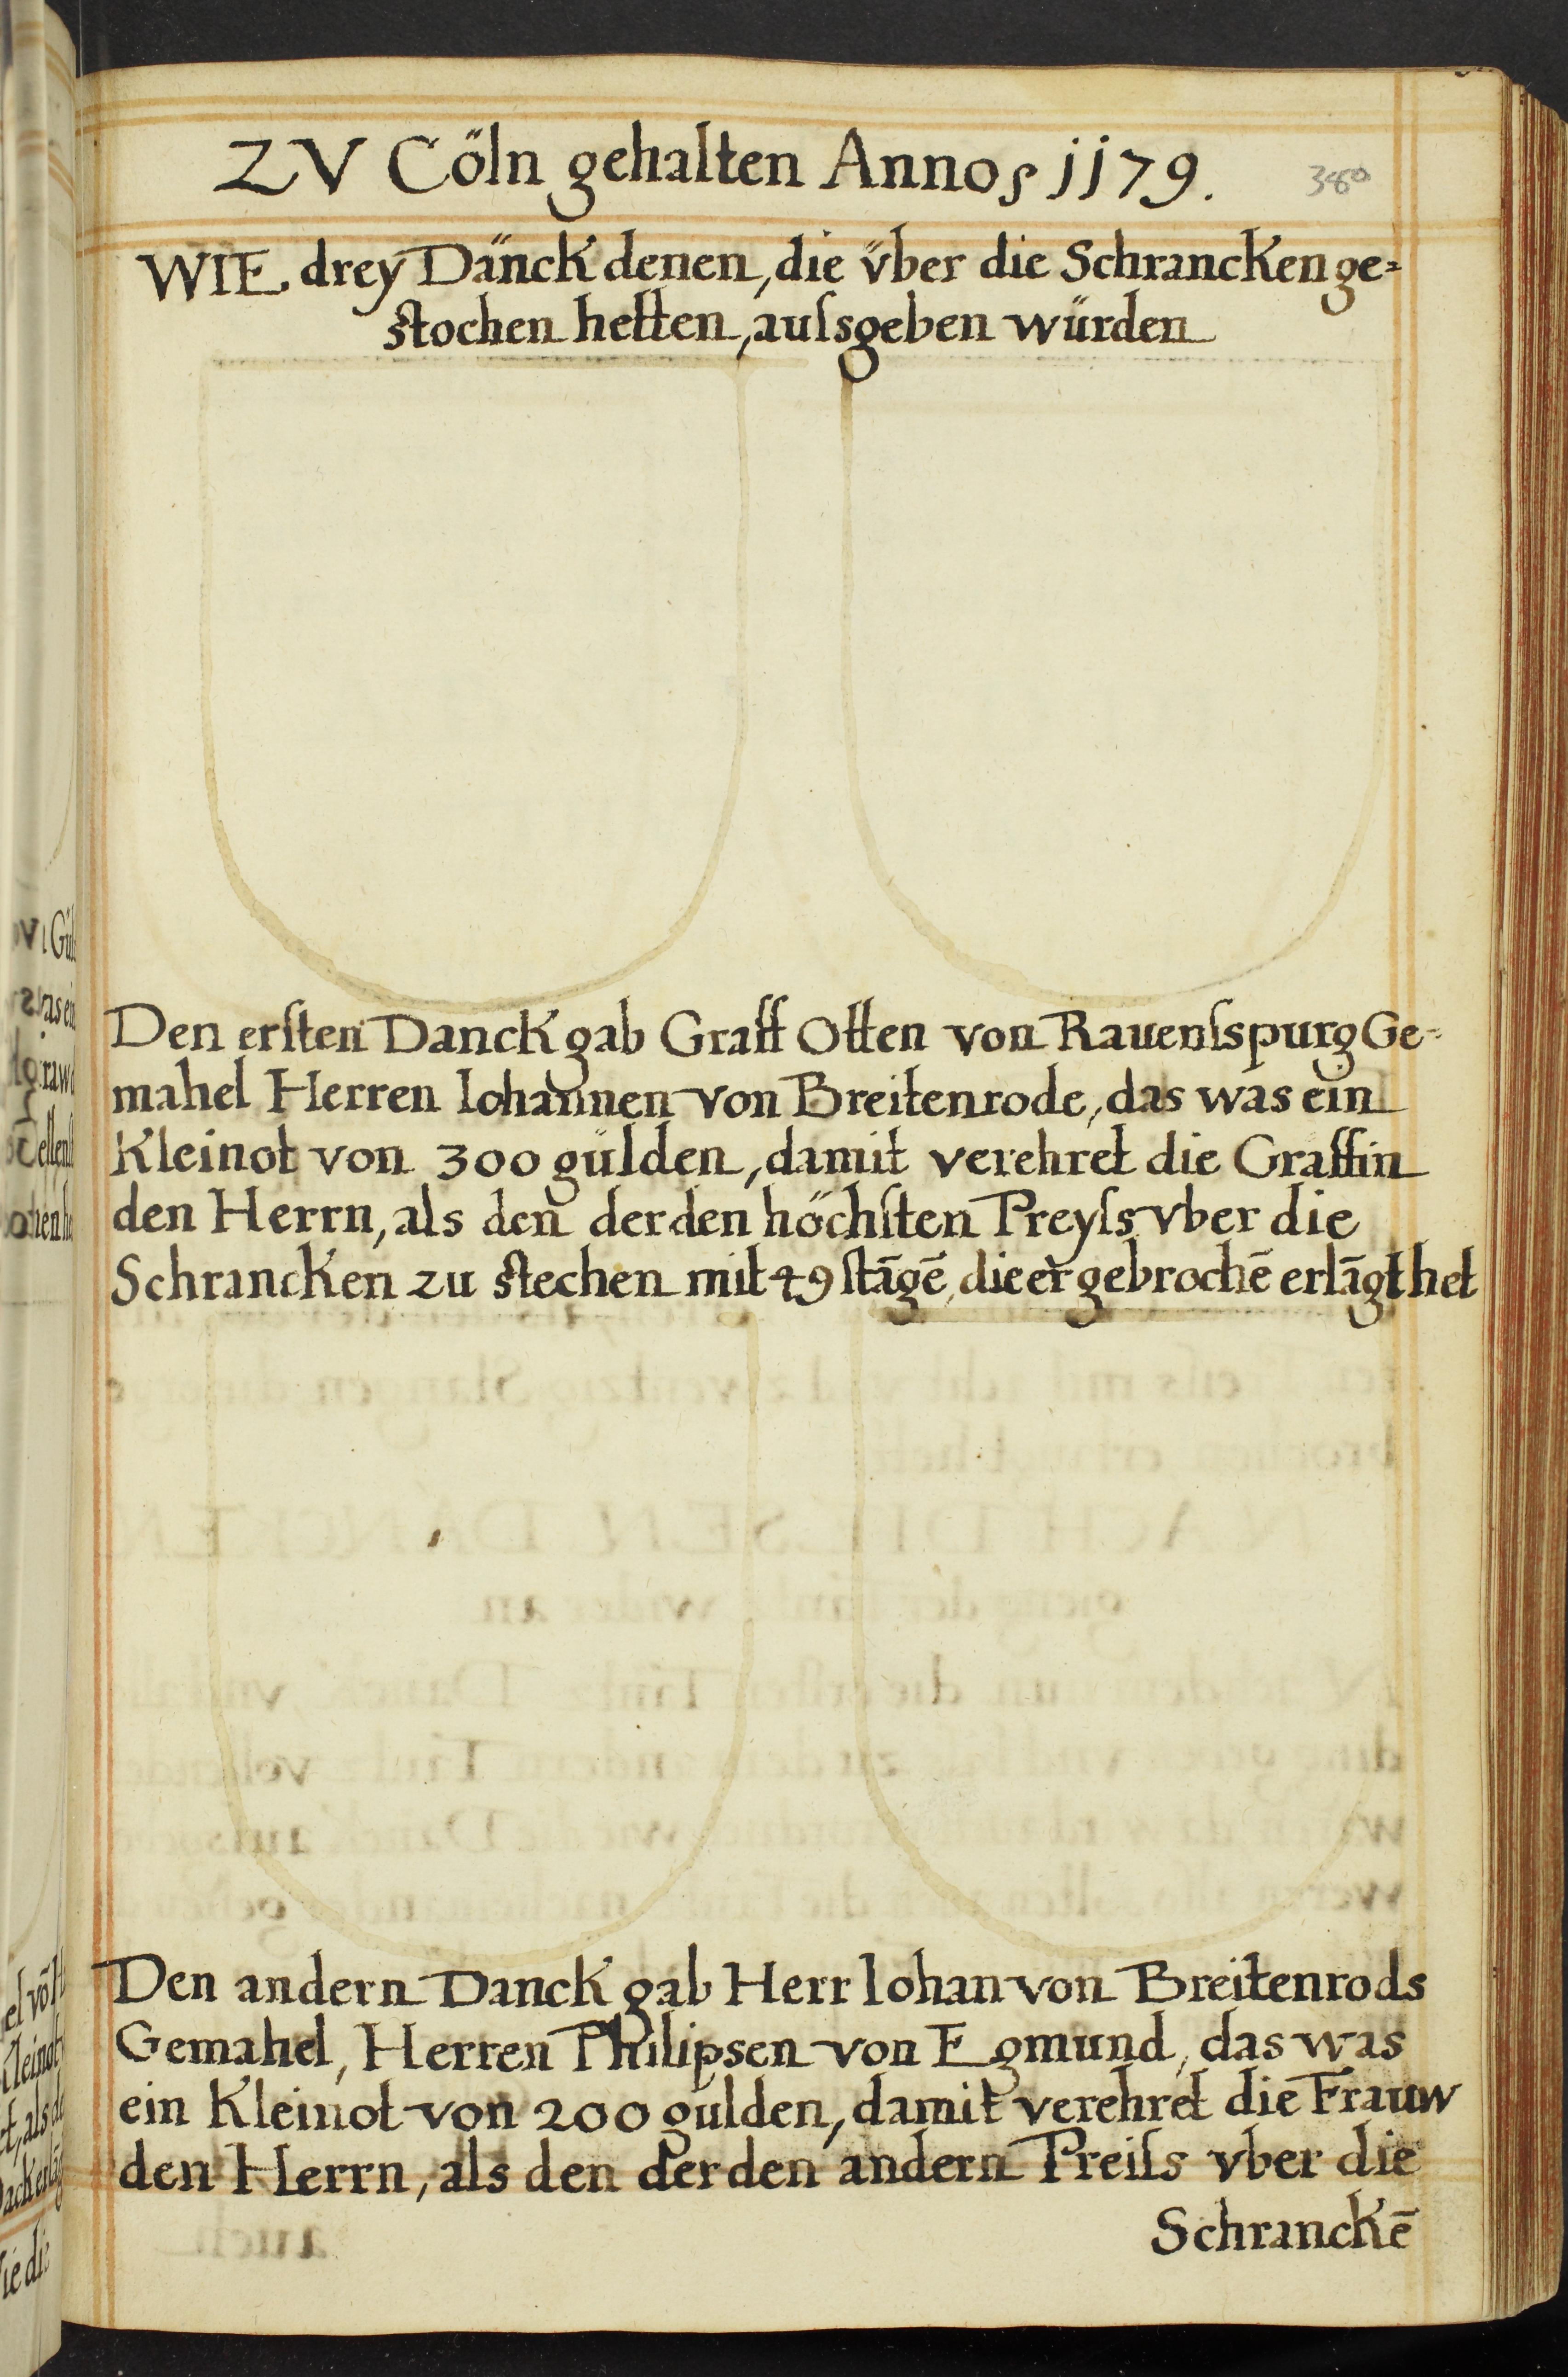 ZV Cöln gehalten Annos 1179.
380
WIE drey Dänck denen, die v̈ber die Schrancken ge=
stochen hetten, auſsgeben würden
Den erſten Danck gab Graff Otten von Rauenſspurg Ge=
mahel Herren Iohannen von Breitenrode, das was ein
Kleinot von 300 gülden, damit verehret die Graffin
den Herrn, als den der den höchſten Preyſs vber die
Schrancken zu stechen mit 49 ſtāgē, die er gebrochē erlāgt het
Den andern Danck gab Herr Iohan von Breitenrods
Gemahel, Herren Philipsen von Egmund, das was
ein Kleinot von 200 gulden, damit verehret die Frauw
den Herrn, als den der den andern Preiſs vber die
Schranckē